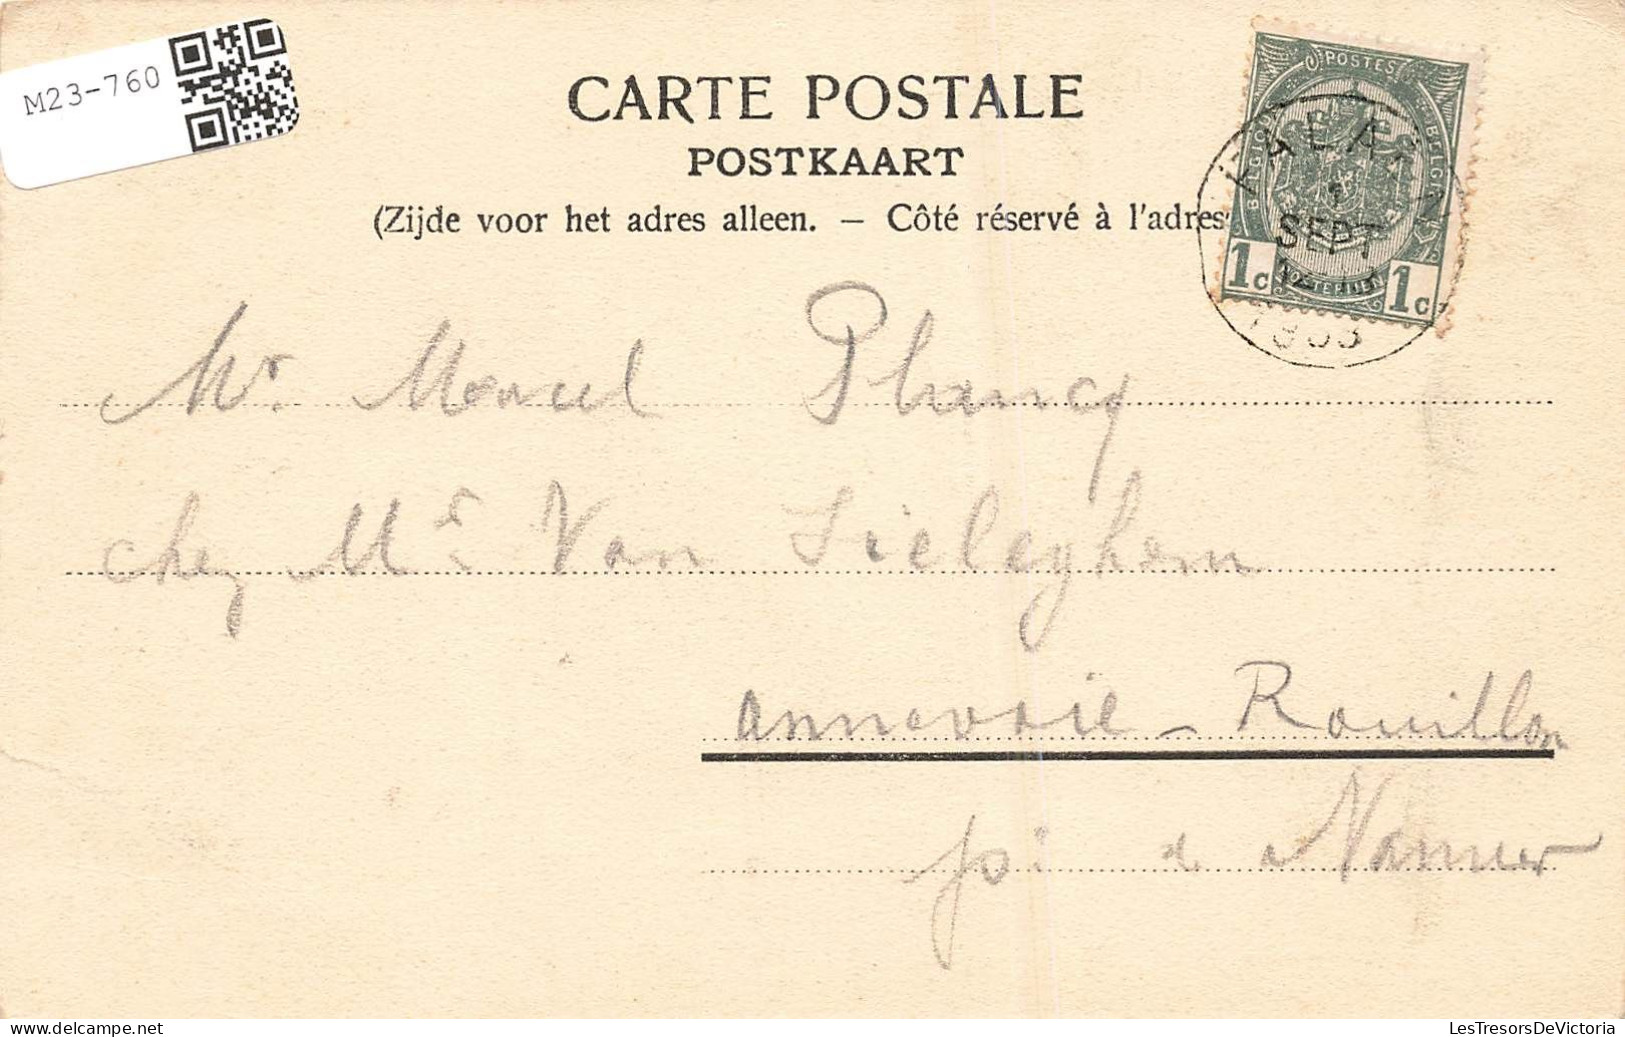 M23-760
CARTE POSTALE
POSTKAART
(Zijde voor het adres alleen. — Côté réservé à l'adres
POSTES
BELGIQUE BELGIË
SEPT
1903
1c 1c
POSTERIJEN
Mr. Marcel Plancq
chez Mr Van Sieleghem
Annevoie - Rouillon
de Namur
delcampe.net
LesTresorsDeVictoria